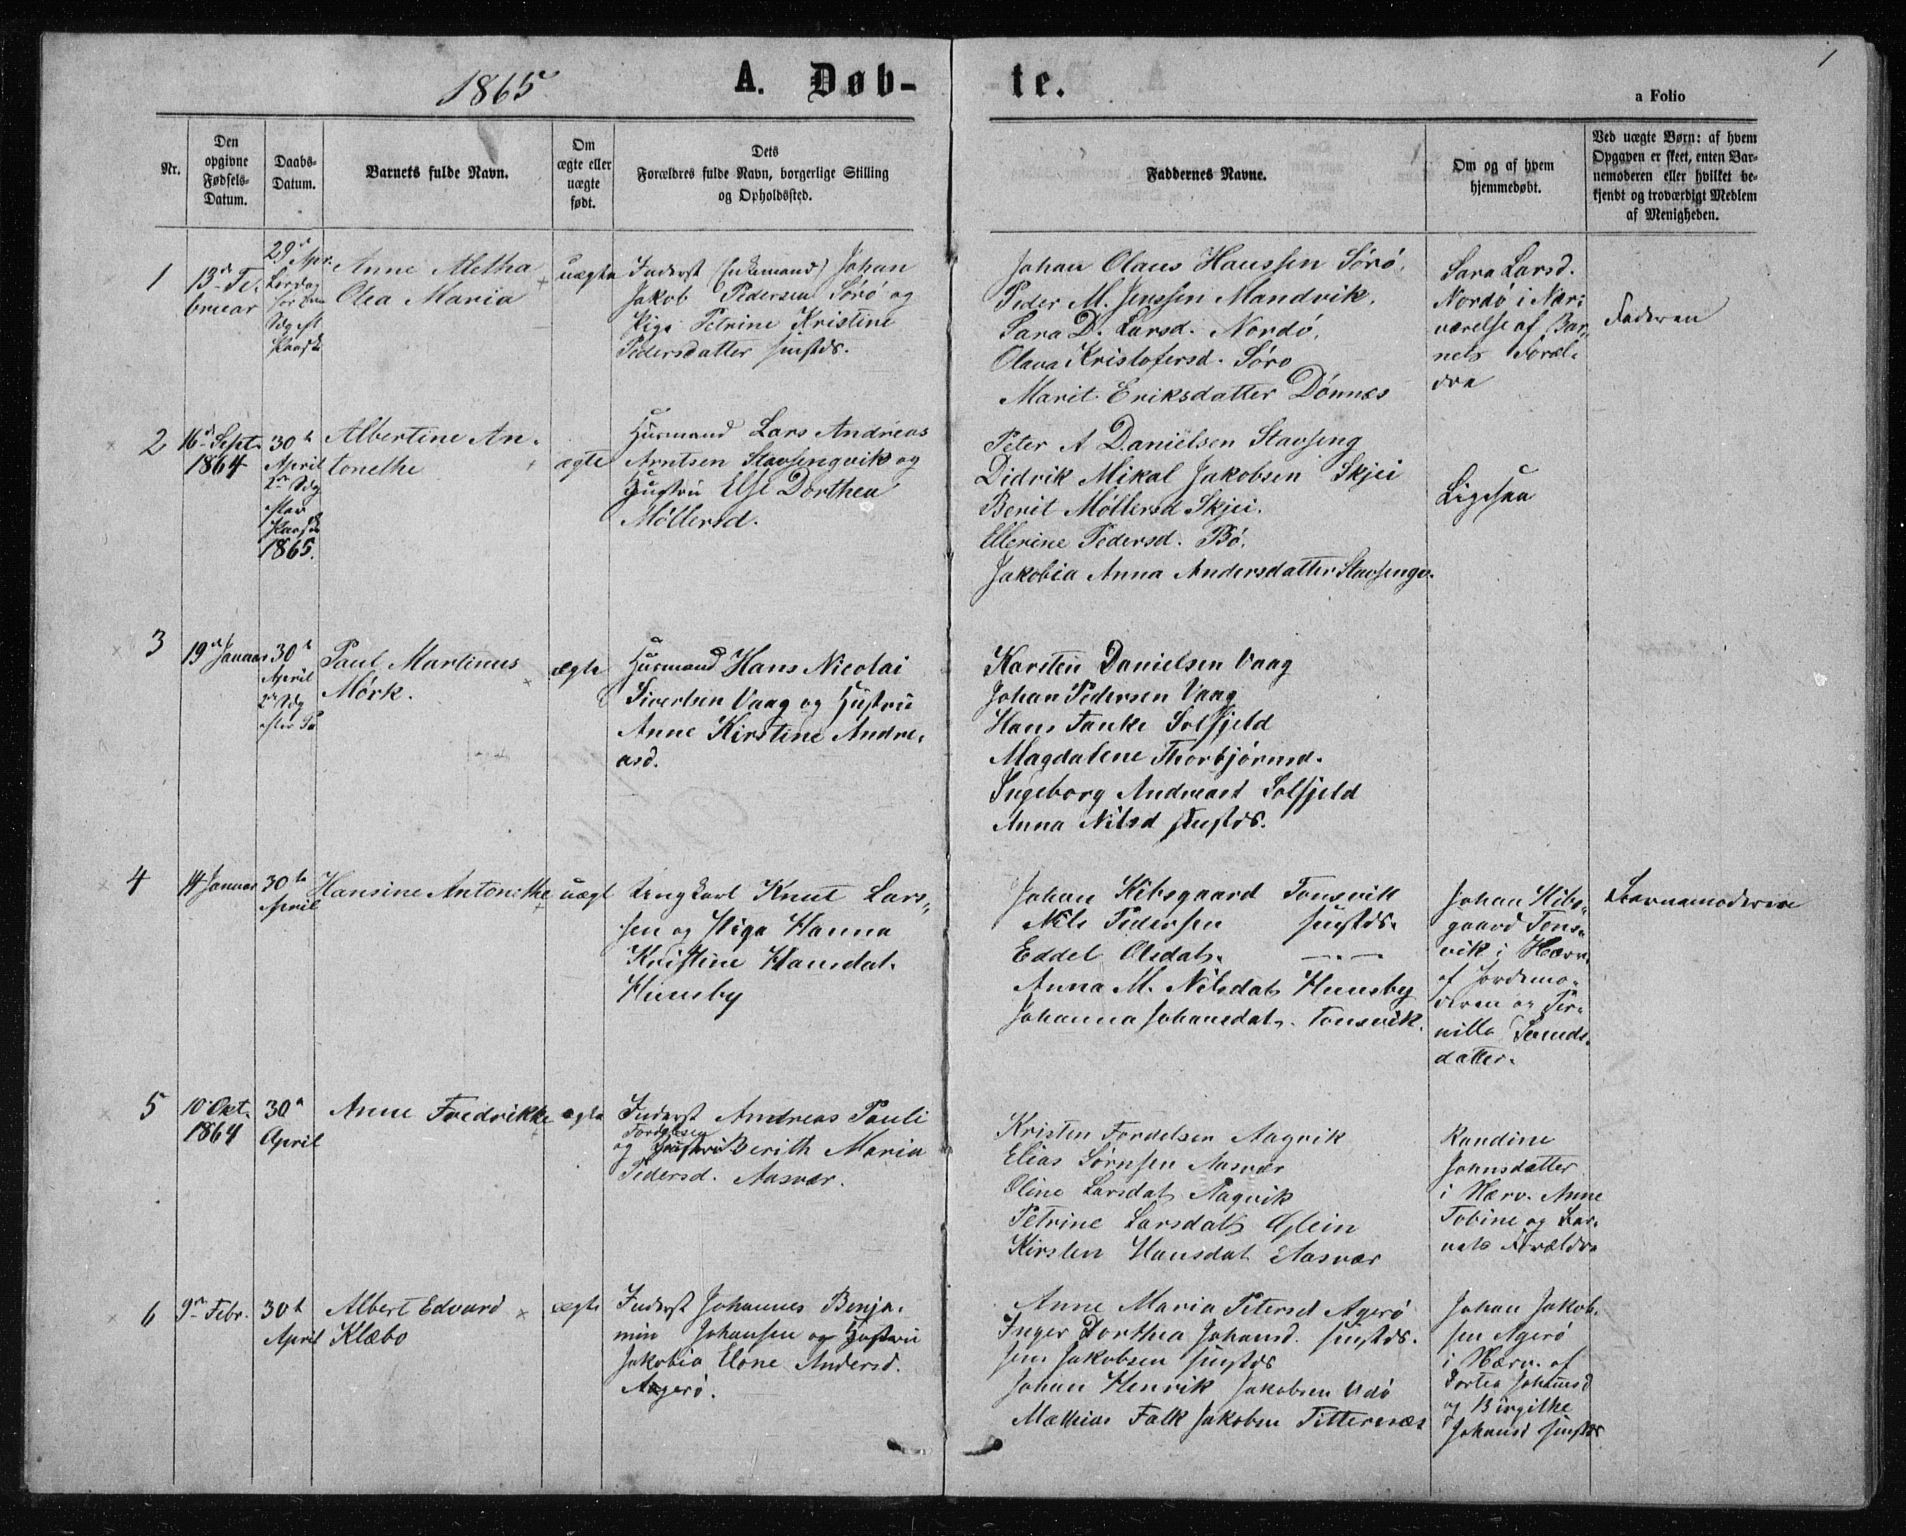 1865
A. Døb-
te.
1
a Folio
Nr.
Den
opgivne
Fødsels-
Datum.
Daabs-
Datum.
Barnets fulde Navn.
Om
ægte eller
uægte
født.
Dets
Forældres fulde Navn, borgerlige Stilling
og Opholdssted.
Faddernes Navne.
Om og af hvem
hjemmedøbt.
Ved uægte Børn: af hvem
Opgaven er skeet, enten Bar-
nemoderen eller hvilket be-
kjendt og troværdigt Medlem
af Menigheden.
1
13de Fe-
bruar
29de Apr.
Lørdag
før 2den
Sdg eft
Paaske
Anne Metha
Olea Maria
uægte
Inderst (Enkemand) Johan
Jakob Pedersen Sørø og
Pige Petrine Kristine
Pedersdatter sammestds.
Johan Olaus Hanssen Sørø.
Peder M. Jenssen Mandvik.
Sara D. Larsd. Nordø.
Olava Kristofersd. Sørø
Marit Eriksdatter Dønnes
Sara Larsd.
Nordø i Nær-
værelse af Bar-
nets Foræl-
dre
Faderen
2
16de Sept.
1864
30te
April
2den Sdg
efter
Paaske
1865.
Albertine An-
tonethe
ægte
Husmand Lars Andreas
Arntsen Stavsengvik og
Hustru Else Dorthea
Møllersd.
Peter A Danielsen Stavseng
Didrik Mikal Jakobsen Skjei
Berit Møllersd Skjei.
Ellerine Pedersd. Bø.
Jakobia Anna Andersdatter Stavsengv.
Ligesaa
3
19de Januar
30te
April
2den Sdg
efter Pa
Paul Martinus
Mørk.
ægte
Husmand Hans Nicolai
Sivertsen Vaag og Hustru
Anne Kirstine Andre-
asd.
Karsten Danielsen Vaag
Johan Pedersen Vaag
Hans Fanke Solfjeld
Magdalene Thorbjørnsd.
Ingeborg Andreasd Solfjeld
Anna Nilsd sammestds.
4
14 Januar
30te
April
Hansine Antonethe
uægt
Ungkarl Knut Lars-
sen og Pige Hanna
Kristine Hansdat.
Hunsby
Johan Kibsgaard Tonsvik
Nils Pedersen sammestds.
Eddel Olsdat. — . —
Anna M. Nilsdat Hunsby
Johanna Johansdat. Tonsvik.
Johan Kibs-
gaard Tons-
vik i Nærv.
af Jordemo-
deren og Per-
nille
datter.
Barnemoderen
5
10 Okt.
1864
30te
April
Anne Fredrikke
ægte
Inderst Andreas Pauli
Fordelsen
og Hustru Berith Maria
Pedersd. Aasvær.
Kristen Fordelsen Aagvik
Elias Sørnsen Aasvær
Oline Larsdat Aagvik
Petrine Larsdat Glein
Kirsten Hansdat Aasvær
Randine
Johnsdatter
i Nærv. Anne
Tobine og Bar-
nets Forældre
6
9de Febr.
30te
April
Albert Edvard
Klæbo
ægte
Inderst Johannes Benja-
min Johansen og Hustru
Jakobia Elone Andersd.
Agerø.
Anne Maria Petersd Agerø
Inger Dorthea Johansd. sammestds.
Jens Jakobsen sammestds
Johan Henrik Jakobsen Udø
Mathias Falk Jakobsen Titternæs
Johan Jakob-
sen Agerø
i Nærv. af
Dortea Johansd
og Birgithe
Johansd sammestds